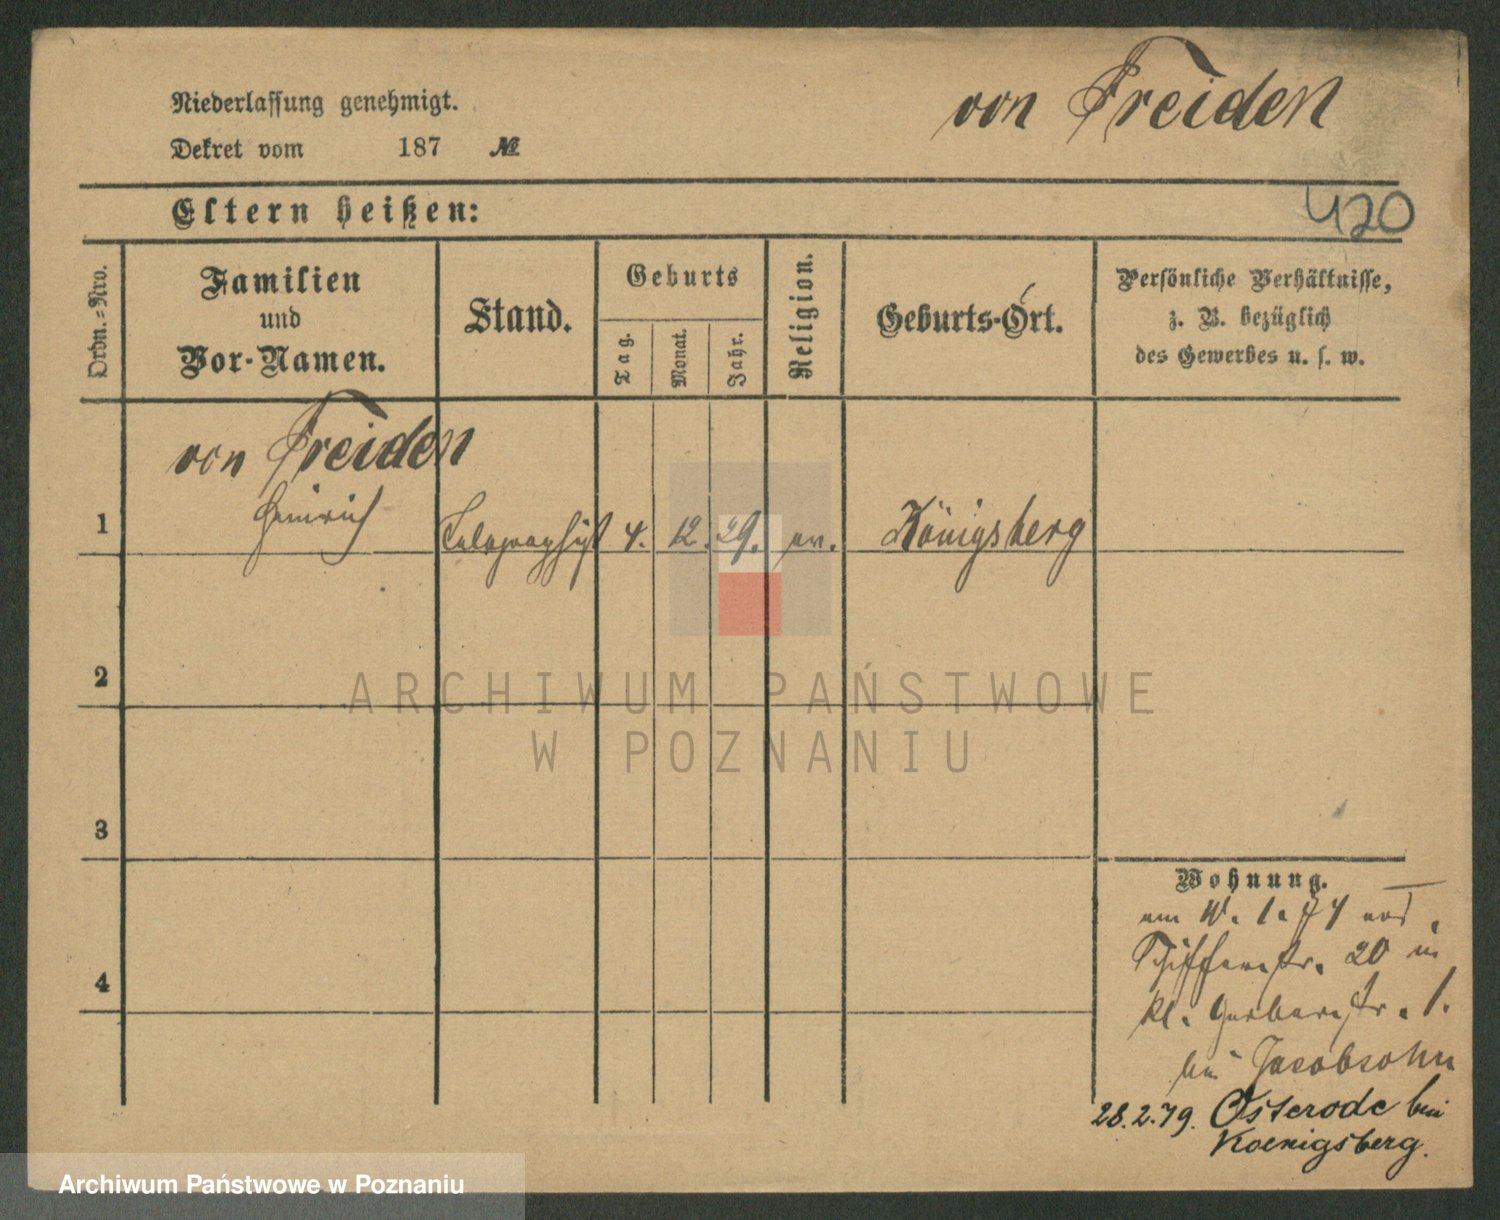 von Freiden
Niederlassung genehmigt.
Dekret vom 187 №
Eltern heißen:
420
Ordn.=Nro.
Familien
und
Vor-Namen.
Stand.
Geburts
Tag.
Monat.
Jahr.
Religion.
Geburts-Ort.
Persönliche Verhältnisse,
z. B. bezüglich
des Gewerbes u. s. w.
von Freiden
1 Heinrich Telegraphist 4. 12. 29. ev. Königsberg
2
ARCHIWUM PAŃSTWOWE
W POZNANIU
3
Wohnung.
4
Schifferstr. 20 in
kl. Gerberstr. 1.
bei Jacobsohn
28.2.79. Osterode bei
Koenigsberg.
Archiwum Państwowe w Poznaniu